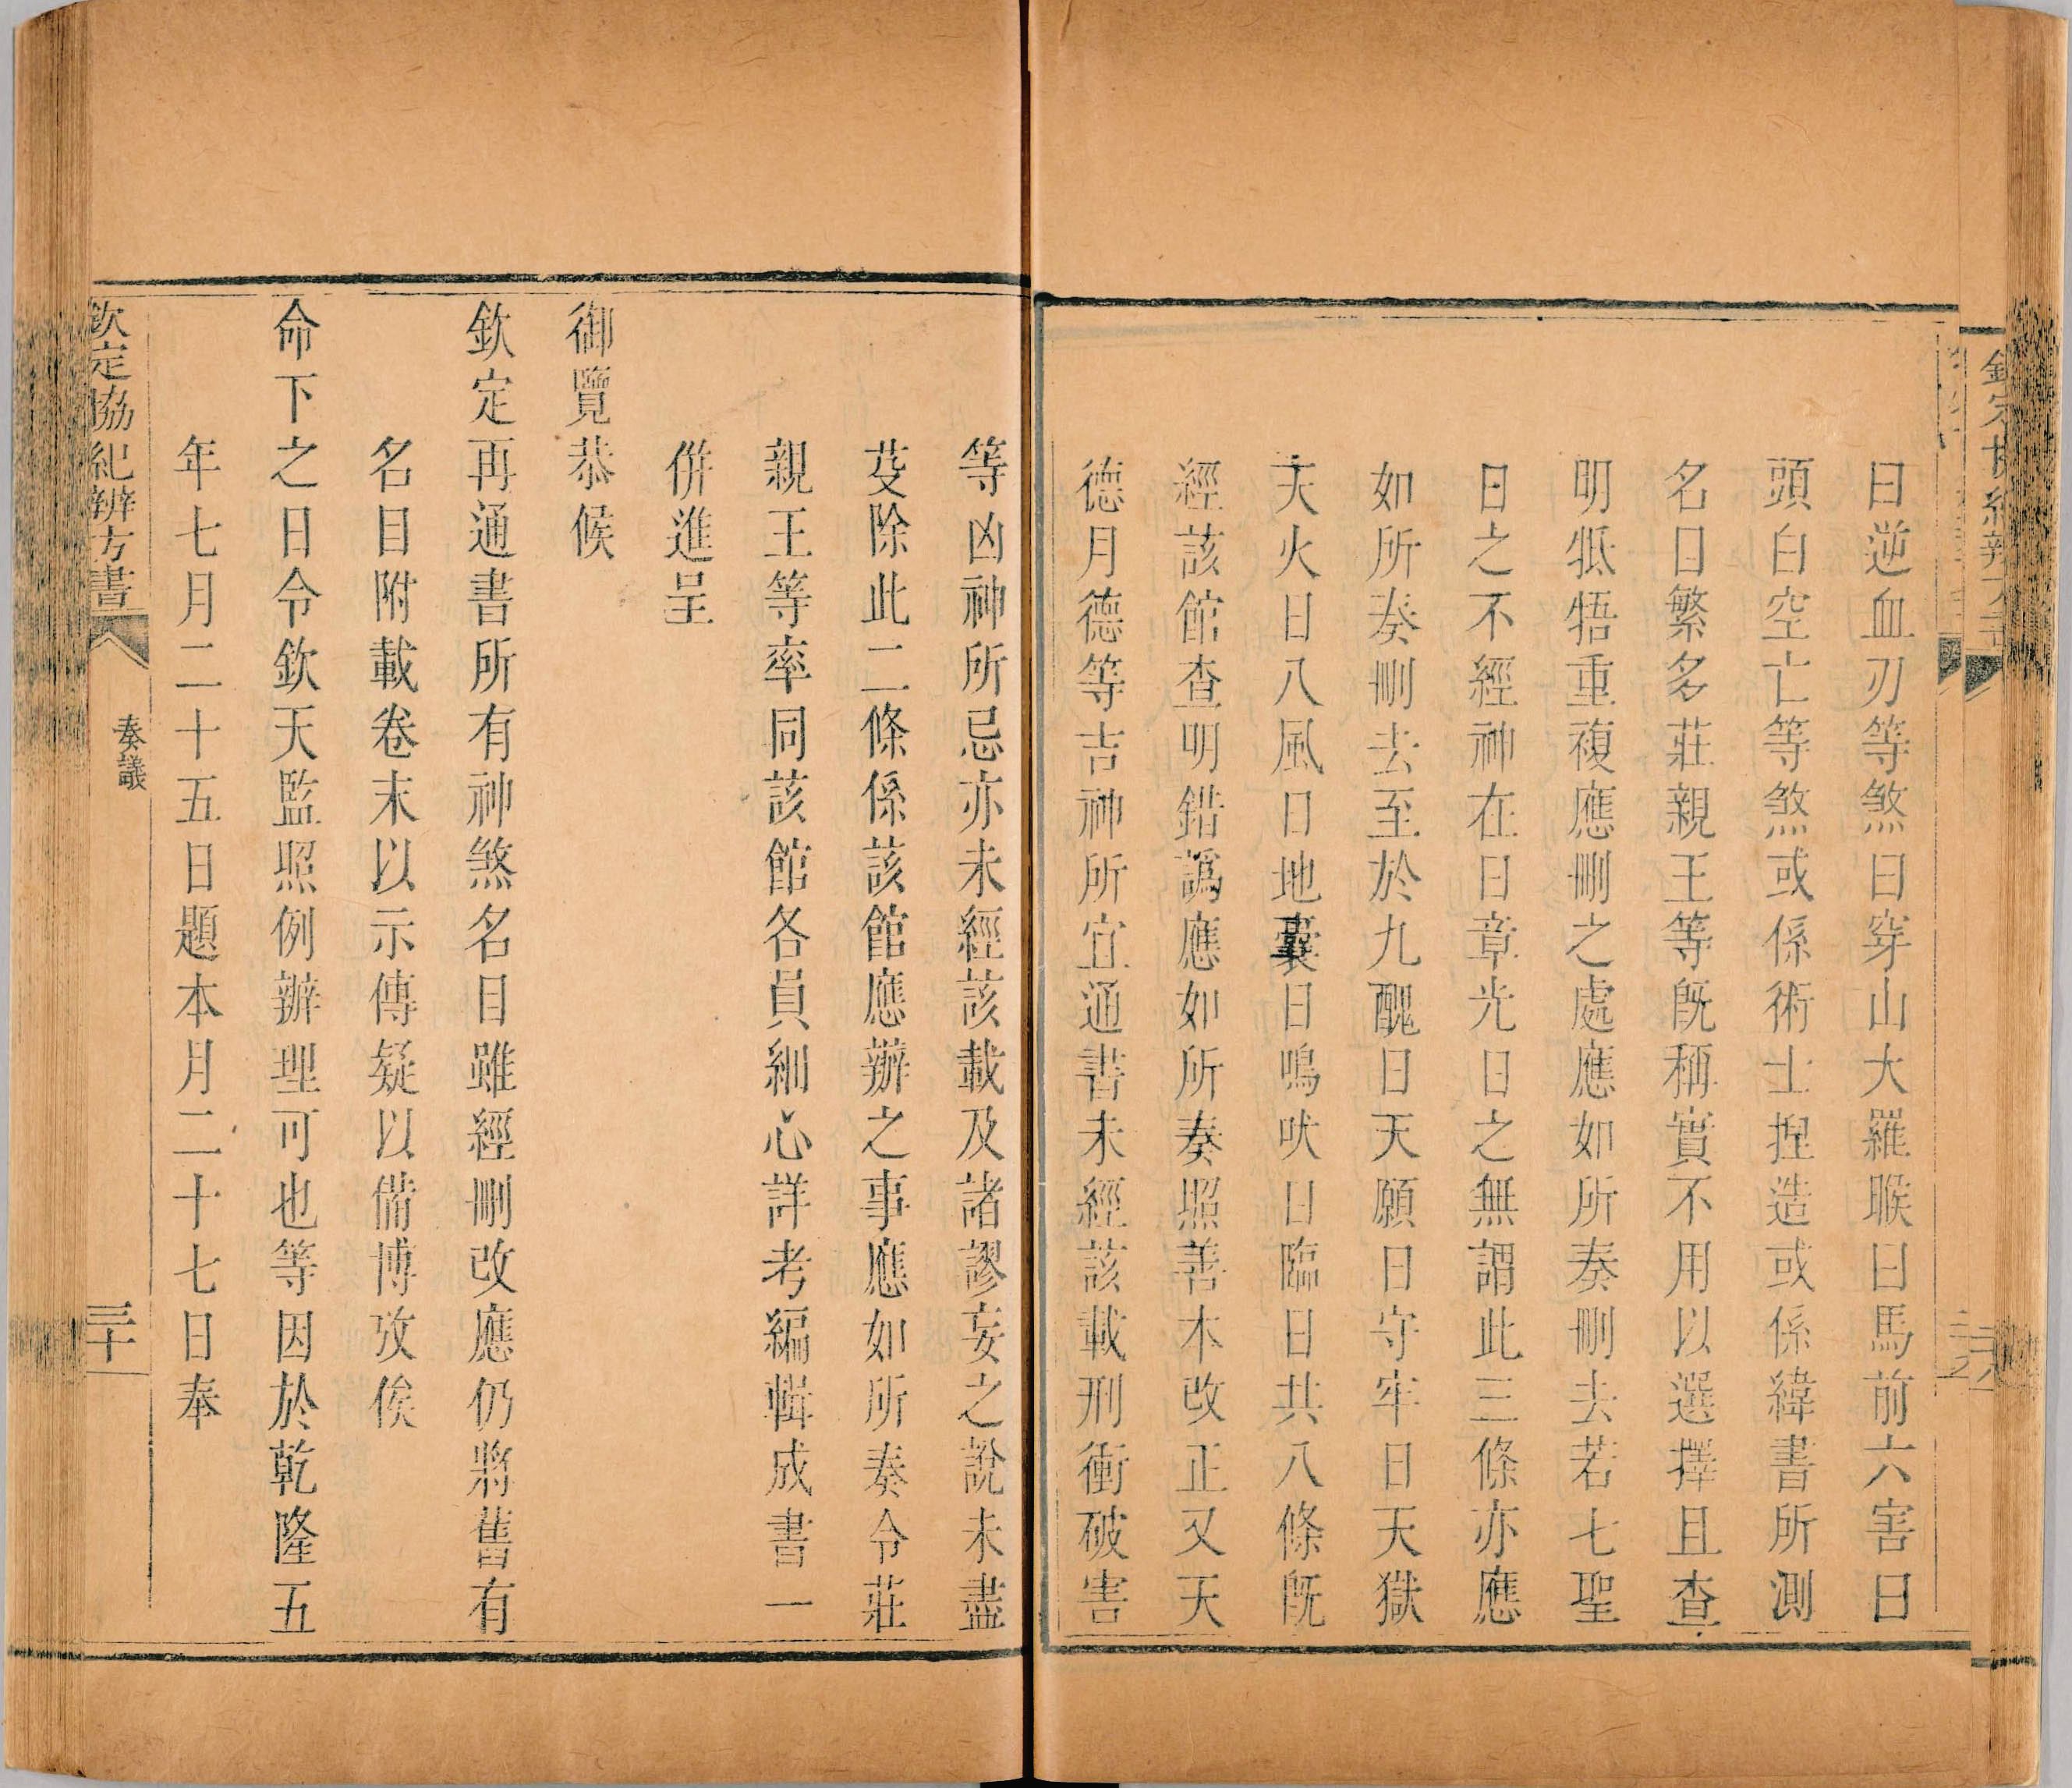 曰逆血刃等煞曰穿山大羅㬋曰馬前六害曰
頭白空亡等煞或係術士捏造或係緯書所測
名目繁多莊親王等既稱實不用以選擇且查
明牴牾重複應刪之處應如所奏刪去若七聖
日之不經神在日章光日之無謂此三條亦應
如所奏刪去至於九醜日天願日守牢日天獄
天火日八風日地囊日鳴吠日臨日共八條既
經該館查明錯譌應如所奏照善本改正又天
德月德等吉神所宜通書未經該載刑衝破害
等凶神所忌亦未經該載及諸謬妄之說未盡
芟除此二條係該館應辦之事應如所奏令莊
親王等率同該館各員細心詳考編輯成書一
併進呈
御覽恭候
欽定再通書所有神煞名目雖經刪改應仍將舊有
名目附載卷末以示傳疑以備博攷俟
命下之日令欽天監照例辦理可也等因於乾隆五
年七月二十五日題本月二十七日奉
欽定協紀辨方書
奏議
三十